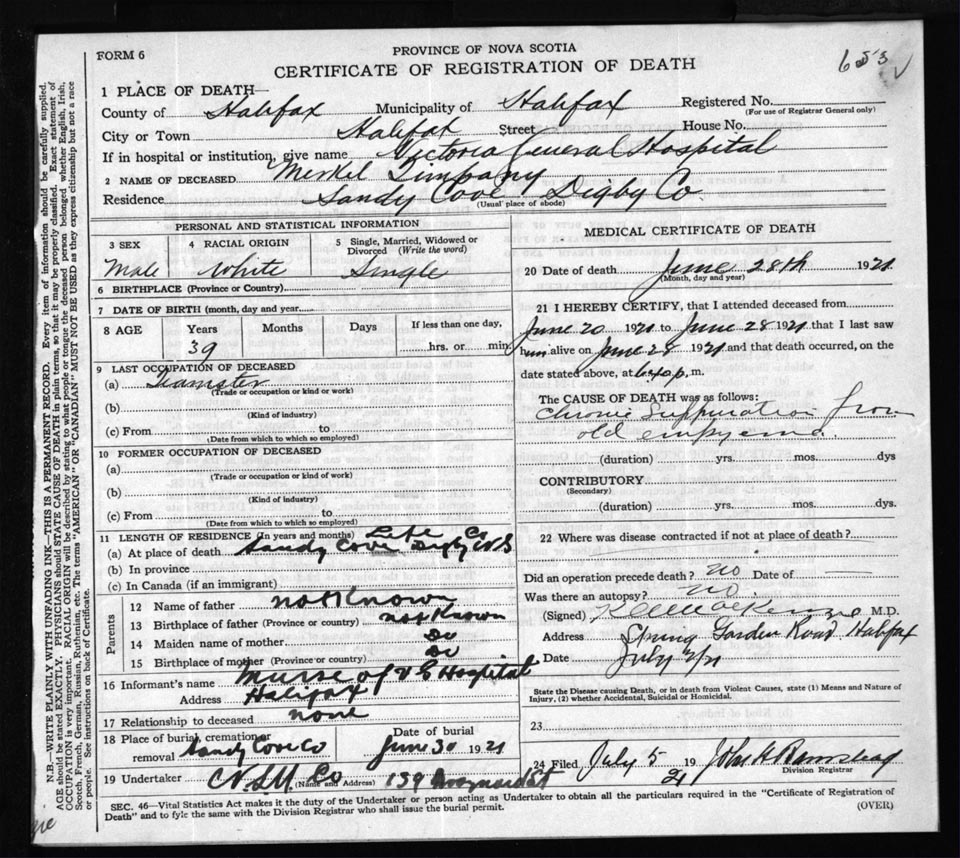 653
FORM 6
PROVINCE OF NOVA SCOTIA
CERTIFICATE OF REGISTRATION OF DEATH
1 PLACE OF DEATH—
County of Halifax Municipality of Halifax Registered No.
(For use of Registrar General only)
City or Town Halifax Street House No.
If in hospital or institution, give name Victoria General Hospital
2 NAME OF DECEASED Merkel Timpany
Residence Sandy Cove Digby Co
(Usual place of abode)
PERSONAL AND STATISTICAL INFORMATION
3 SEX 4 RACIAL ORIGIN 5 Single, Married, Widowed or Divorced (Write the word)
Male White Single
6 BIRTHPLACE (Province or Country)
7 DATE OF BIRTH (month, day and year
8 AGE Years Months Days If less than one day,
39 hrs. or min.
9 LAST OCCUPATION OF DECEASED
(a) Teamster
(Trade or occupation or kind or work)
(b)
(Kind of industry)
(c) From to
(Date from which to which so employed)
10 FORMER OCCUPATION OF DECEASED
(a)
(Trade or occupation or kind of work)
(b)
(Kind of industry)
(c) From to
(Date from which to which so employed)
11 LENGTH OF RESIDENCE (In years and months) Life
(a) At place of death Sandy Cove Digby Co N S
(b) In province
(c) In Canada (if an immigrant)
Parents
12 Name of father not Known
13 Birthplace of father (Province or country) not Known
14 Maiden name of mother Do
15 Birthplace of mother (Province or country) Do
16 Informant's name Nurse of V G Hospital
Address Halifax
17 Relationship to deceased none
18 Place of burial, cremation or removal Sandy Cove Co
Date of burial June 30 1921
19 Undertaker C. N. S. U. Co (Name and Address) 139 Maynard St
MEDICAL CERTIFICATE OF DEATH
20 Date of death June 28th 1921
(Month, day and year)
21 I HEREBY CERTIFY, that I attended deceased from
June 20 1921 to June 28 1921 that I last saw
him alive on June 28 1921 and that death occurred, on the
date stated above, at 6.40 p. m.
The CAUSE OF DEATH was as follows:
Chronic Suppuration from
old empyema.
(duration) yrs. mos. dys
CONTRIBUTORY
(Secondary)
(duration) yrs. mos. dys.
22 Where was disease contracted if not at place of death?
Did an operation precede death? no Date of —
Was there an autopsy? no.
(Signed) MacKenzie M.D.
Address Spring Garden Road Halifax
Date July 2/21
State the Disease causing Death, or in death from Violent Causes, state (1) Means and Nature of Injury, (2) whether Accidental, Suicidal or Homicidal.
23
24 Filed July 5 19 21 John H
Division Registrar
SEC. 46—Vital Statistics Act makes it the duty of the Undertaker or person acting as Undertaker to obtain all the particulars required in the "Certificate of Registration of
Death" and to fyle the same with the Division Registrar who shall issue the burial permit.
(OVER)
N.B.—WRITE PLAINLY WITH UNFADING INK—THIS IS A PERMANENT RECORD. Every item of information should be carefully supplied.
AGE should be stated EXACTLY. PHYSICIANS should STATE CAUSE OF DEATH in plain terms, so that it may be properly classified. Exact statement of
OCCUPATION is very important. RACIAL ORIGIN will be described by stating to what people or tongue the deceased person belonged whether English, Irish,
Scotch, French, German, Russian, Ruthenian, etc. The terms "AMERICAN" OR "CANADIAN" MUST NOT BE USED as they express citizenship but not a race
or people. See instructions on back of Certificate.